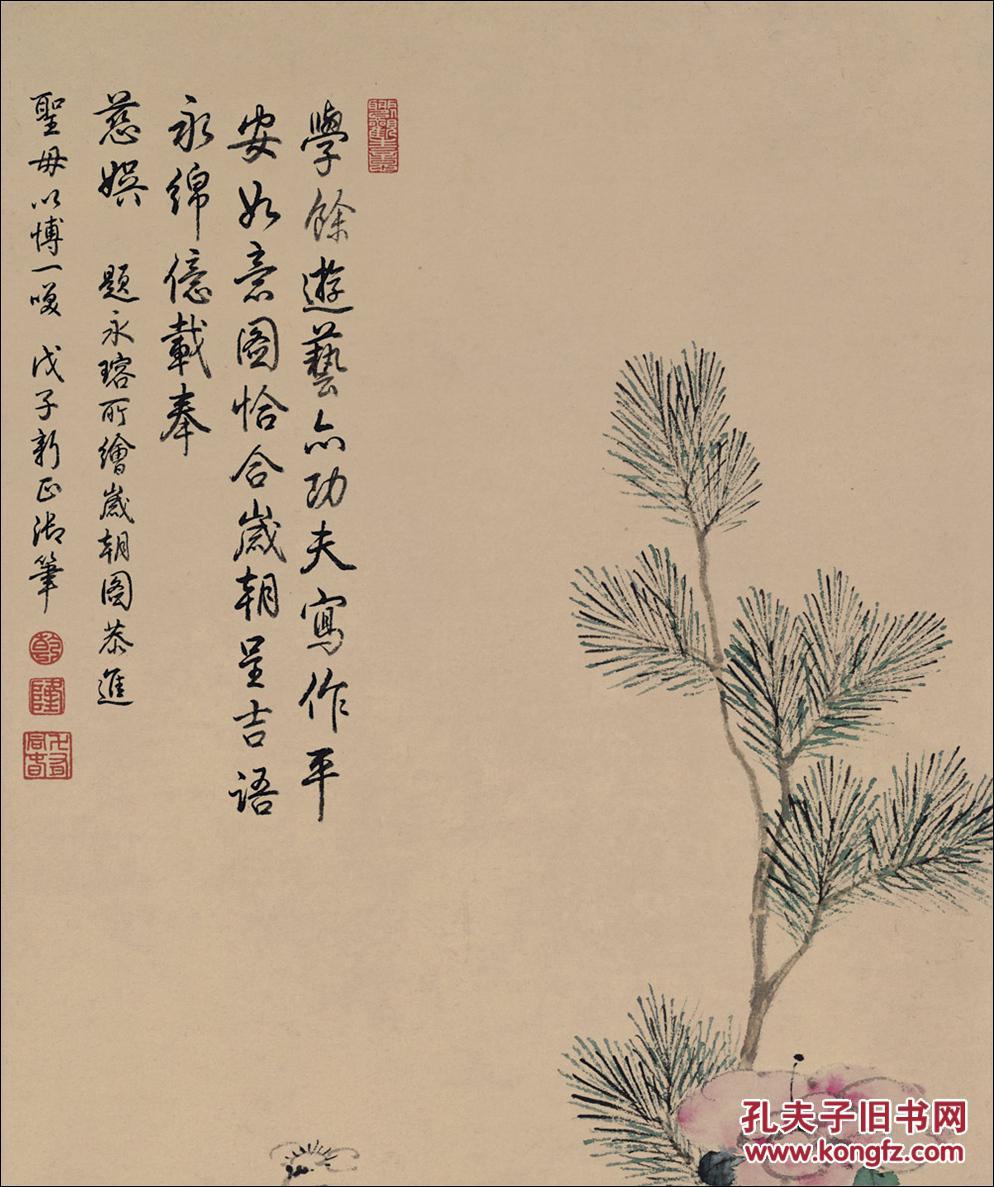 學餘遊藝亦功夫寫作平
安如意圖恰合歲朝呈吉語
永綿億載奉
慈娛 題永瑢所繪歲朝圖恭進
聖母以博一噗 戊子新正御筆
乾
隆
孔夫子旧书网
www.kongfz.com